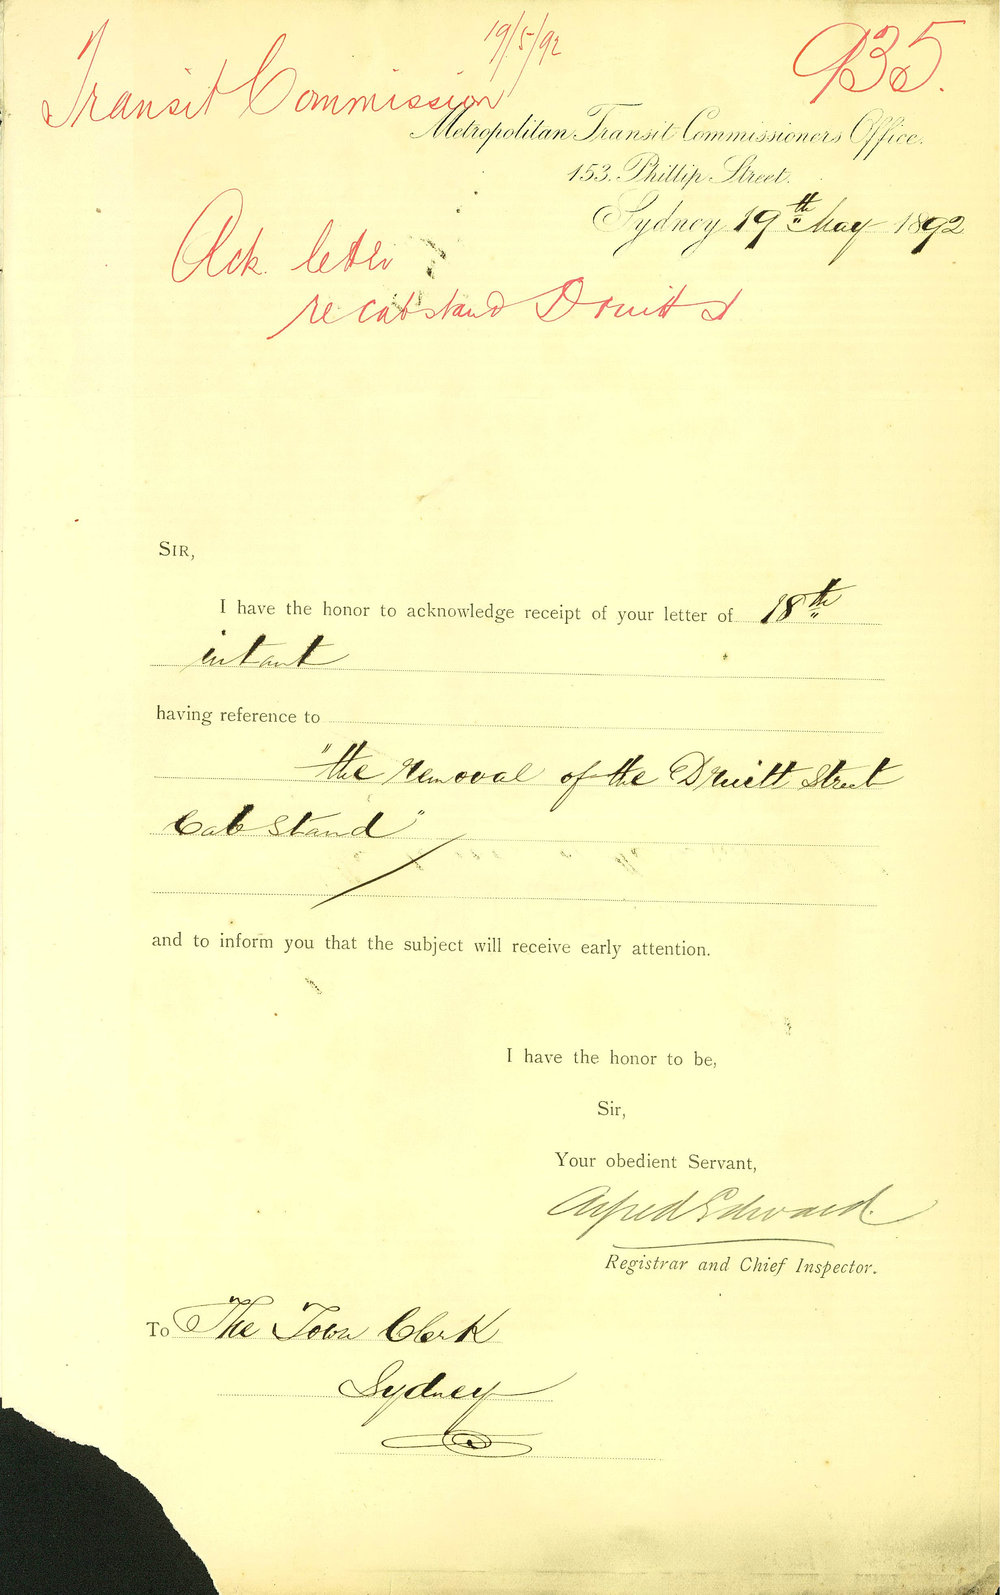 19/5/92
935.
Transit Commission
Metropolitan Transit Commissioners Office.
153. Phillip Street.
Sydney 19th May 1892
Ack. letter
re cabstand Druitt St
SIR,
I have the honor to acknowledge receipt of your letter of 18th
intant
having reference to
"the removal of the Druitt Street
Cab Stand"
and to inform you that the subject will receive early attention.
I have the honor to be,
Sir,
Your obedient Servant,
Alfred Edward.
Registrar and Chief Inspector.
To The Town Clerk
Sydney